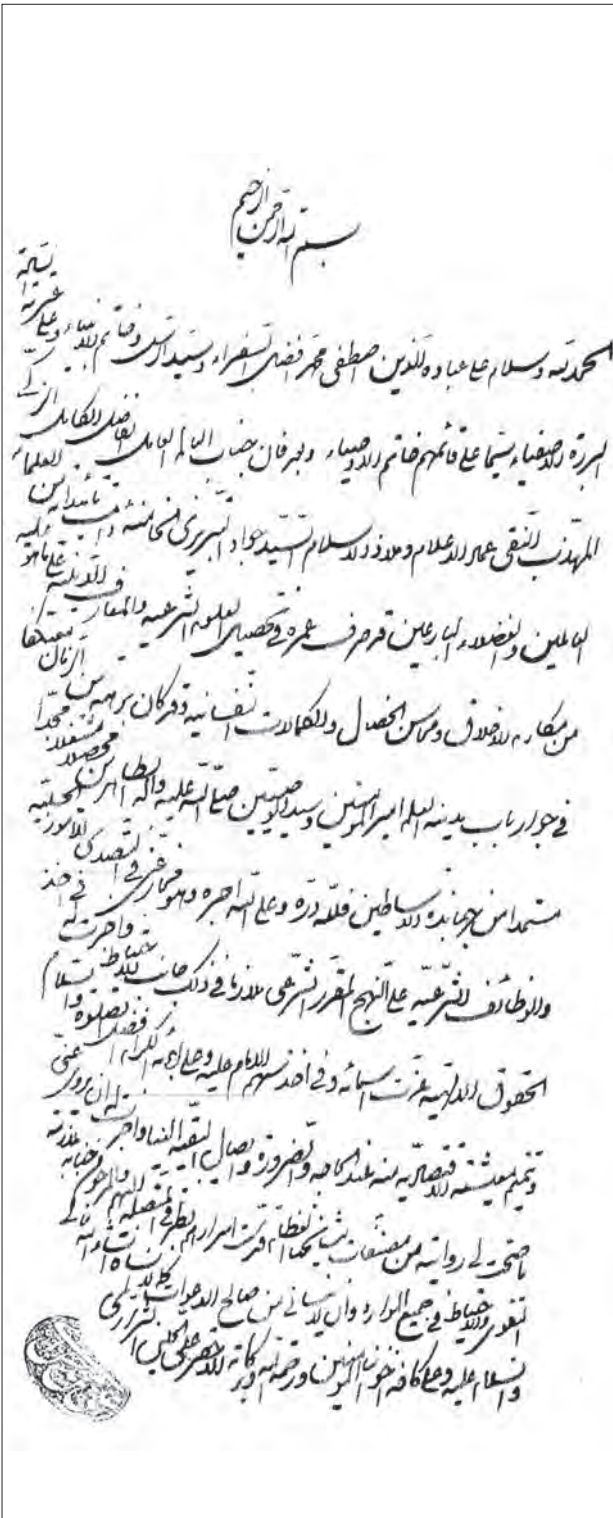 بسم الله الرحمن الرحیم
الحمد لله وسلام على عباده الذين اصطفى محمد افضل السفراء وسید الرسل وخاتم الانبیاء وعلى عترته
البررة الاصفیاء سیما على قائمهم خاتم الاوصیاء وبعد فان جناب العالم العامل الفاضل الكامل الزكي
المهذب النقي عماد الاعلام وملاذ الاسلام السید جواد التبریزي دامت تأییداته من العلماء
العاملین والفضلاء البارعین قد صرف عمره في تحصیل العلوم الشرعیه والمعارف الدینیة علیه
من مكارم الاخلاق ومحاسن الخصال والكمالات النفسانیه وقد كان برهة من الزمان
في جوار باب مدینة العلم امیر المؤمنین وسید الوصیین صلى الله علیه وآله الطاهرین مجدا محصلا مشتغلا
مستمدا من جهابذة الاساطین فلله دره وعلى الله اجره وهو مجاز عني في التصدي للامور الحسبیة
والوظائف الشرعیه على النهج المقرر الشرعي ملازما في ذلك جانب الاحتیاط واجزت له في اخذ
الحقوق الالهیة عزت اسمائه وفي اخذ سهم الامام علیه وعلى آبائه الكرام افضل الصلوة والسلام
وتتمیم معیشته الاقتصادیه منه عند الحاجه والضرورة وایصال البقیه الینا واجزت له ان یروي عني
ما صحت لي روایته من مصنفات مشایخنا العظام قدست اسرارهم
التقوى والاحتیاط في جمیع الموارد وان لا ینساني من صالح الدعوات ان شاء الله
والسلام علیه وعلى كافة اخواننا المؤمنین ورحمة الله وبركاته